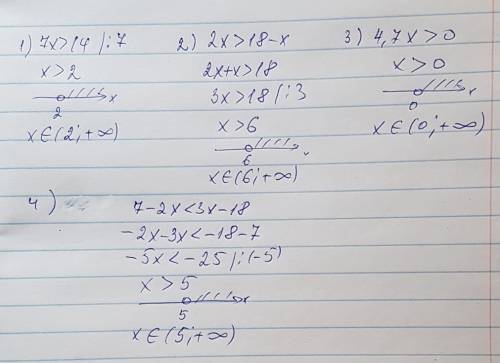 1) 7x>14 |:7
x>2
2 x
x∈(2;+∞)
2) 2x>18-x
2x+x>18
3x>18 |:3
x>6
6
x∈(6;+∞)
3) 4,7x>0
x>0
0 x
x∈(0;+∞)
4)
7-2x<3x-18
-2x-3x<-18-7
-5x<-25 |:(-5)
x>5
5 x
x∈(5;+∞)